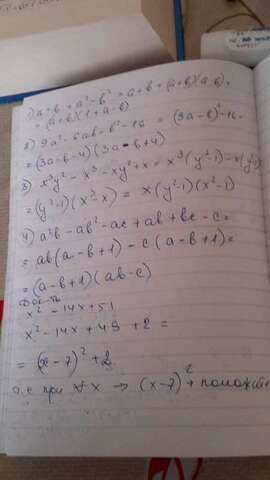 1) a+b+a²-b² = a+b+(a+b)(a-b)=
= (a+b)(1+a-b)
2) 9a²-6ab+b²-16 = (3a-b)²-16=
= (3a-b-4)(3a-b+4)
3) x³y²-x³-xy²+x = x³(y²-1)-x(y²-1)
= (y²-1)(x³-x) = x(y²-1)(x²-1)
4) a²b-ab²-ac+ab+bc-c=
= ab(a-b+1)-c(a-b+1)=
= (a-b+1)(ab-c)
Док-ть
x²-14x+51
x²-14x+49+2=
= (x-7)²+2
при ∀x → (x-7)²+